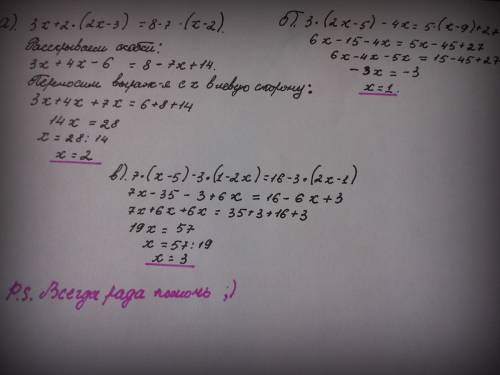 а). 3x+2·(2x-3)=8-7·(x-2).
Раскрываем скобки:
3x+4x-6 = 8-7x+14.
Переносим выраж-я с x в левую сторону:
3x+4x+7x = 6+8+14
14x = 28
x = 28:14
x = 2
б). 3·(2x-5)-4x=5·(x-9)+27
6x-15-4x = 5x-45+27
6x-4x-5x = 15-45+27
-3x = -3
x=1.
в). 7·(x-5)-3·(1-2x)=16-3·(2x-1)
7x-35-3+6x = 16-6x+3
7x+6x+6x = 35+3+16+3
19x = 57
x = 57:19
x = 3
P.S. Всегда рада помочь ;)